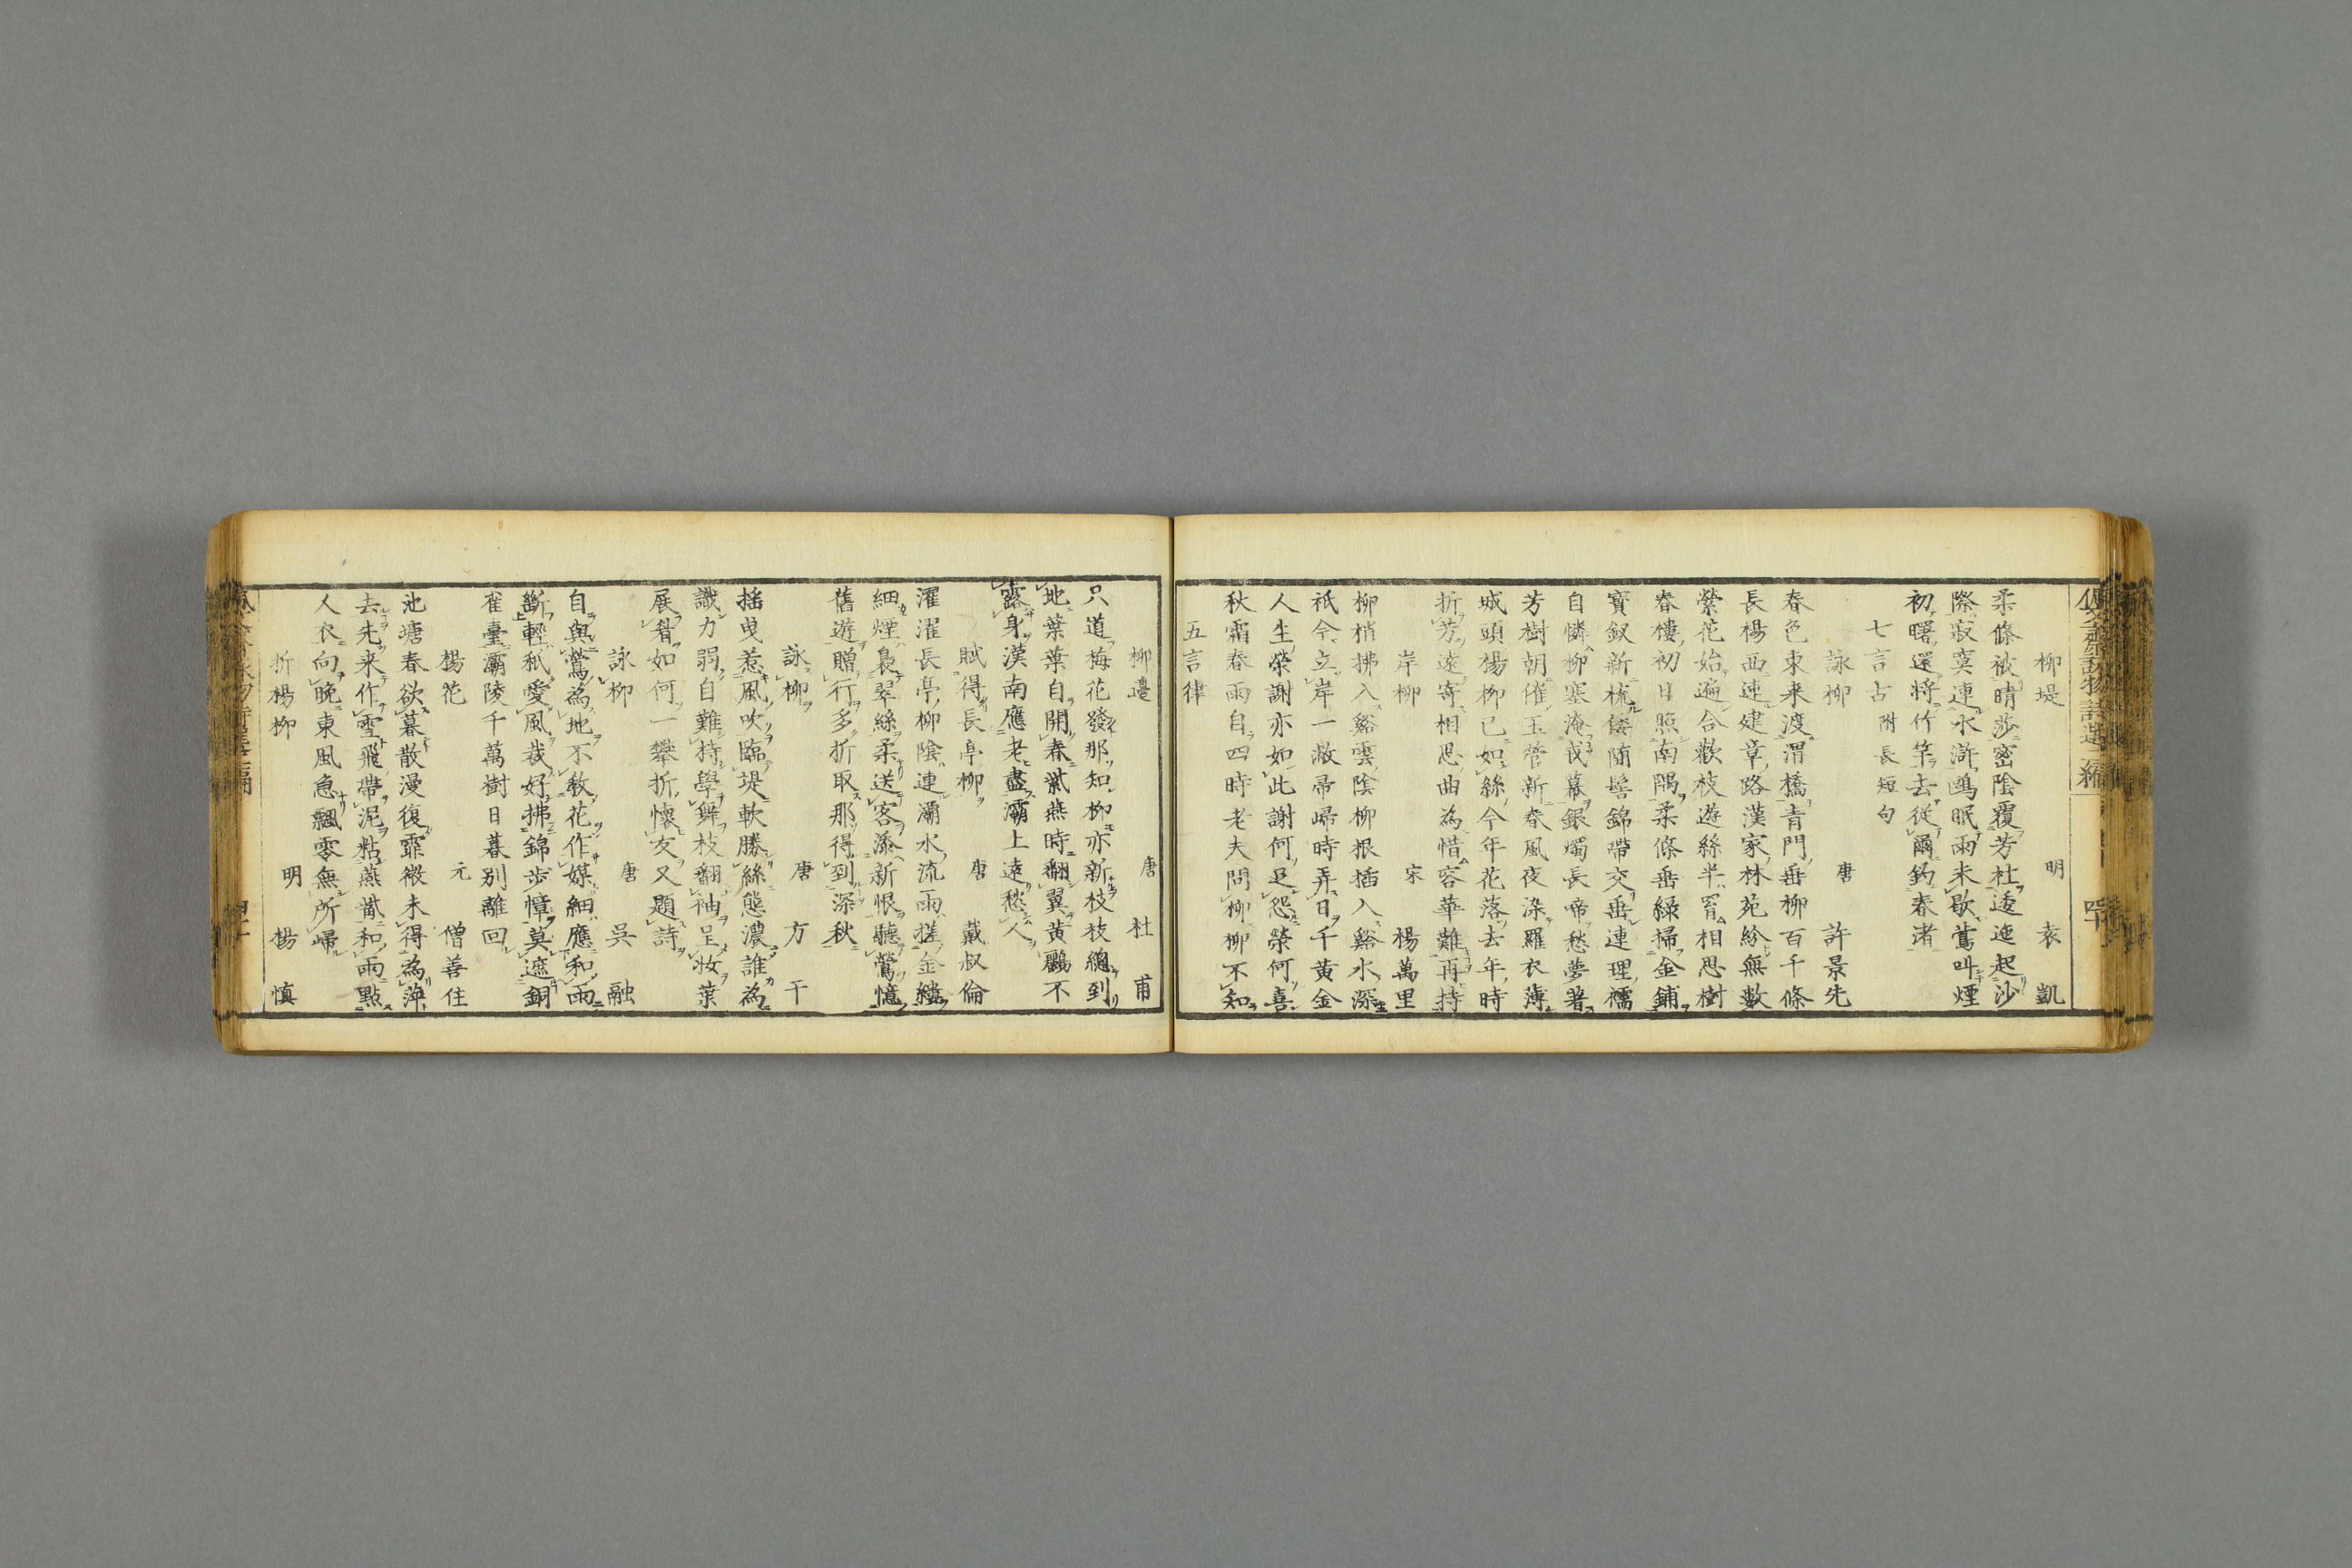 佩文齋詠物詩選二編
柳堤 明 袁凱
柔條被晴莎密陰覆芳杜逶迤起沙
際寂寞連水滸鷗眠雨未歇鶯叫煙
初曙還將竹竿去從爾釣春渚
七言古 附長短句
詠柳 唐 許景先
春色東來渡渭橋青門垂柳百千條
長楊西連建章路漢家林苑紛無數
縈花始遍合歡枝遊絲半罥相思樹
春樓初日照南隅柔條垂綠掃金鋪
寶釵新梳倭隨髻錦帶交垂連理襦
自憐柳塞淹戎幕銀燭長啼愁夢著
芳樹朝催玉管新春風夜染羅衣薄
城頭楊柳已如絲今年花落去年時
折芳遠寄相思曲為惜容華難再持
岸柳 宋 楊萬里
柳梢拂入谿雲陰柳根插入谿水深
祇今立岸一敝帚歸時弄日千黃金
人生榮謝亦如此謝何足怨榮何喜
秋霜春雨自四時老夫問柳柳不知
五言律
柳邊 唐 杜甫
只道梅花發那知柳亦新枝枝總到
地葉葉自開春紫燕時翻翼黃鸝不
露身漢南應老盡灞上遠愁人
賦得長亭柳 唐 戴叔倫
濯濯長亭柳陰連灞水流雨搓金縷
細煙裊翠絲柔送客添新恨聽鶯憶
舊遊贈行多折取那得到深秋
詠柳 唐 方干
搖曳惹風吹臨堤軟勝絲態濃誰為
識力弱自難持學舞枝翻袖呈妝葉
展眉如何一攀折懷友又題詩
詠柳 唐 吳融
自與鶯為地不教花作媒細應和雨
斷輕秖愛風裁好拂錦步幛莫遮銅
雀臺灞陵千萬樹日暮別離回
楊花 元 僧善住
池塘春欲暮散漫復霏微未得為萍
去先來作雪飛帶泥粘燕觜和雨點
人衣向晚東風急飄零無所歸
折楊柳 明 楊慎